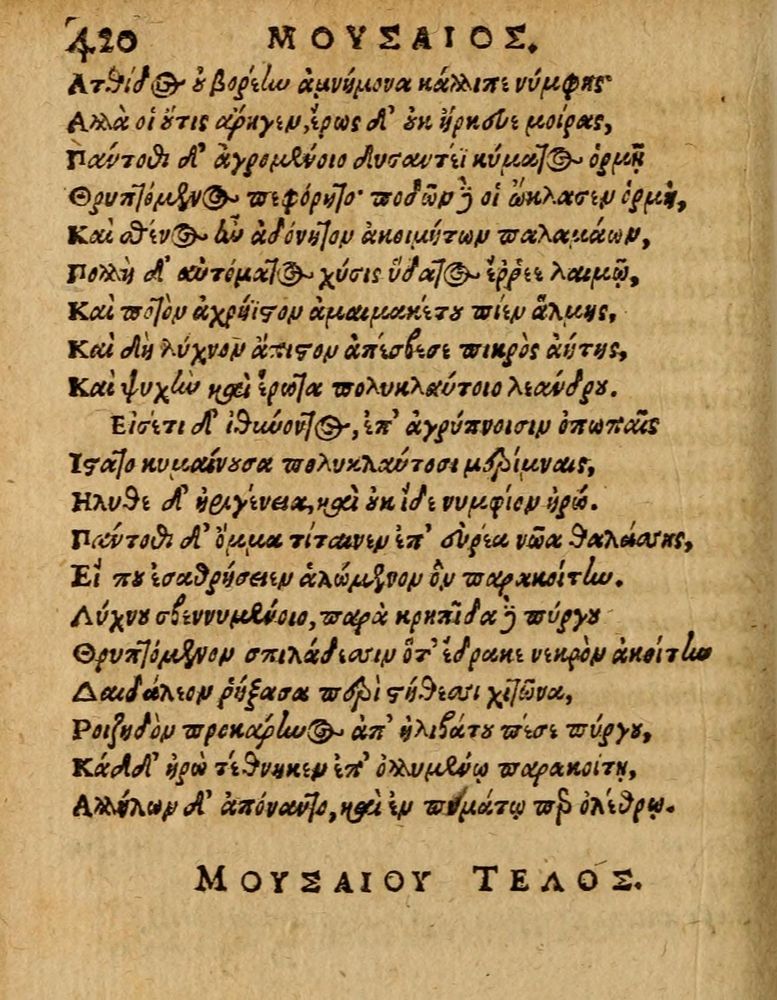 420 ΜΟΥΣΑΙΟΣ.
Ατθίδος οὐ βορέην ἀμνήμονα κάλλιπε νύμφης·
Αλλὰ οἱ οὔτις ἄρηγεν, ἔρως δ' οὐκ ἤρκεσε μοίρας,
Πάντοθι δ' ἀγρομένοιο δυσαντέϊ κύματος ὁρμῇ
Θρυπτόμενος πεφόρητο· ποδῶν δέ οἱ ὤκλασεν ὁρμὴ,
Καὶ σθένος ἦν ἀδόνητον ἀκοιμήτων παλαμάων,
Πολλὴ δ' αὐτόματος χύσις ὕδατος ἔρρεε λαιμῷ,
Καὶ ποτὸν ἀχρήϊστον ἀμαιμακέτου πίεν ἅλμης,
Καὶ δὴ λύχνον ἄπιστον ἀπέσβεσε πικρὸς ἀήτης,
Καὶ ψυχὴν καὶ ἔρωτα πολυκλαύτοιο λεάνδρου.
Εἰσέτι δ' ἰθύνοντος, ἐπ' ἀγρύπνοισιν ὀπωπαῖς
Ιστατο κυμαίνουσα πολυκλαύτοσι μερίμναις,
Ηλυθε δ' ἠριγένεια, καὶ οὐκ ἴδε νυμφίον ἡρώ.
Πάντοθι δ' ὄμμα τίταινεν ἐπ' εὐρέα νῶα θαλάσσης,
Εἴ που ἐσαθρήσειεν ἀλώμενον ὃν παρακοίτην.
Λύχνου σβεννυμένοιο, παρὰ κρηπῖδα δὲ πύργου
Θρυπτόμενον σπιλάδεσσιν ὅτ' ἔδρακε νεκρὸν ἀκοίτην
Δαιδάλεον ῥήξασα περὶ στήθεσσι χιτῶνα,
Ροιζηδὸν προκάρηνος ἀπ' ἠλιβάτου πέσε πύργου,
Κάδδ' ἡρὼ τέθνηκεν ἐπ' ὀλλυμένῳ παρακοίτῃ,
Αλλήλων δ' ἀπόναντο, καὶ ἐν πυμάτῳ περ ὀλέθρῳ.
ΜΟΥΣΑΙΟΥ ΤΕΛΟΣ.